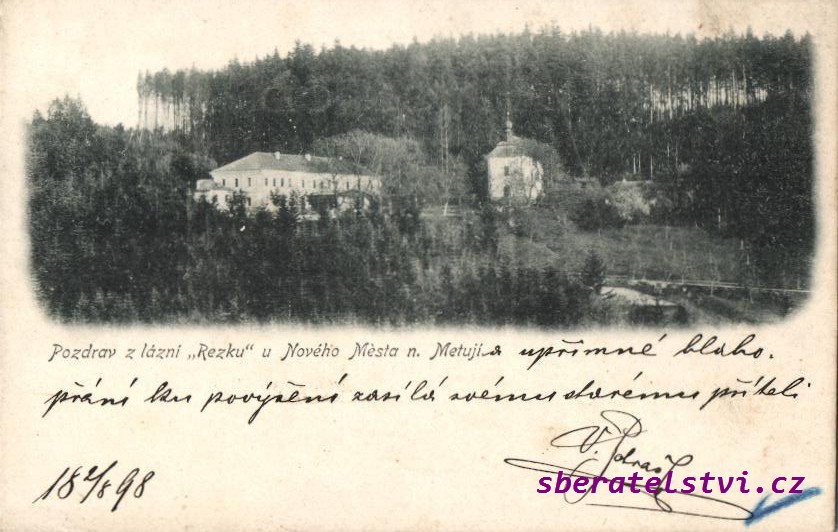 sberatelstvi.cz
Pozdrav z lázní „Rezku" u Nového Města n. Metují a upřímné blaho-
přání ku povýšení zasílá svému starému příteli
V.
sberatelstvi.cz
18 2/8 98